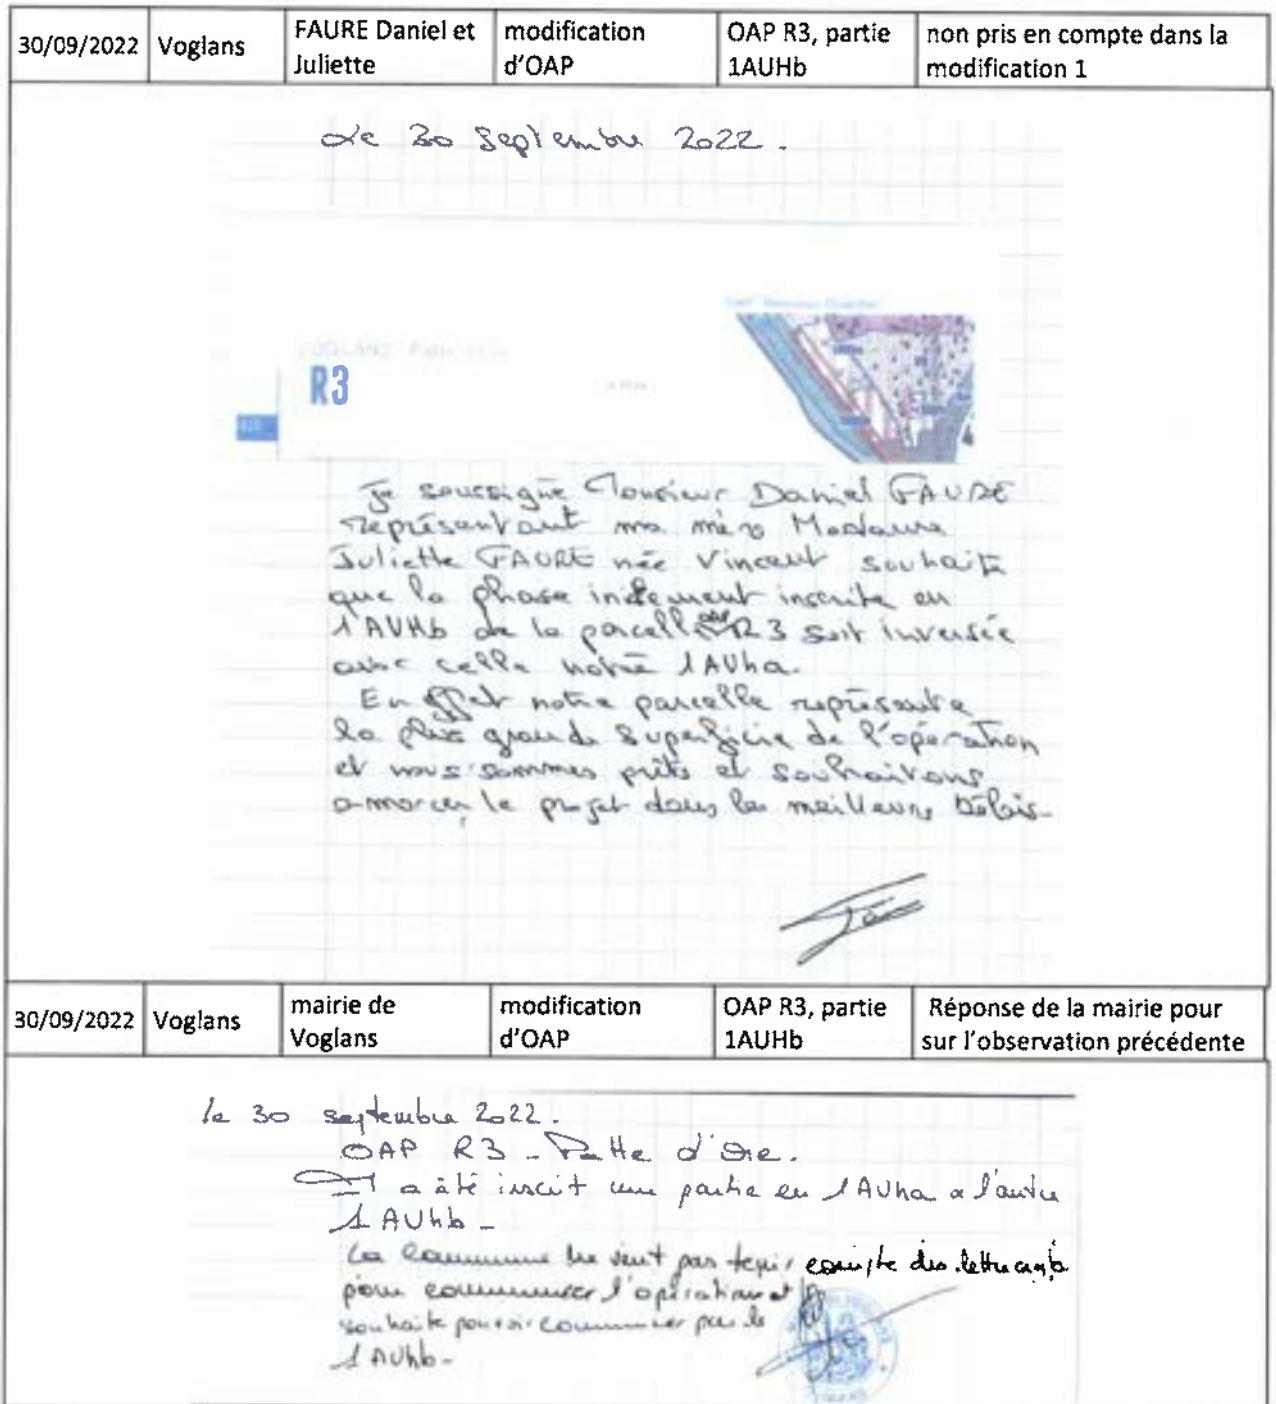 30/09/2022 Voglans FAURE Daniel et Juliette modification d'OAP OAP R3, partie 1AUHb non pris en compte dans la modification 1
Le 30 Septembre 2022.
R3
Je soussigné Monsieur Daniel FAURE
représentant ma mère Madame
Juliette FAURE née Vincent souhaite
que la phase inscrite en
1AUHb de la parcelle OAP R3 soit inversée
avec celle notée 1AUha.
En effet notre parcelle représente
la plus grande superficie de l'opération
et nous sommes prêts et souhaitons
amorcer le projet dans les meilleurs délais-
30/09/2022 Voglans mairie de Voglans modification d'OAP OAP R3, partie 1AUHb Réponse de la mairie pour sur l'observation précédente
le 30 septembre 2022.
OAP R3 - Patte d'Oie.
Il a été inscrit une partie en 1AUha a l'autre
1AUhb -
La Commune ne veut pas tenir compte des lettres
pour commencer l'opération et
souhaite pouvoir commencer par le
1AUhb -